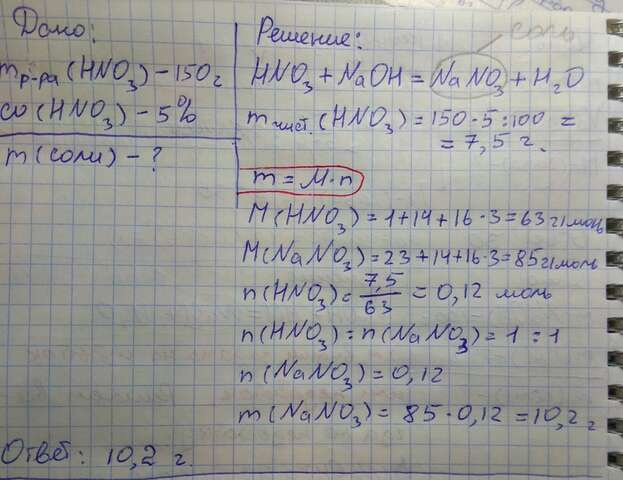 соль
Дано:
m р-ра (HNO₃) – 150 г
ω (HNO₃) – 5%
m (соли) – ?
Решение:
HNO₃ + NaOH = NaNO₃ + H₂O
m чист. (HNO₃) = 150 · 5 : 100 =
= 7,5 г.
m = M · n
M (HNO₃) = 1 + 14 + 16 · 3 = 63 г/моль
M (NaNO₃) = 23 + 14 + 16 · 3 = 85 г/моль
n (HNO₃) = 7,5/63 = 0,12 моль
n (HNO₃) : n (NaNO₃) = 1 : 1
n (NaNO₃) = 0,12
m (NaNO₃) = 85 · 0,12 = 10,2 г
Ответ: 10,2 г.